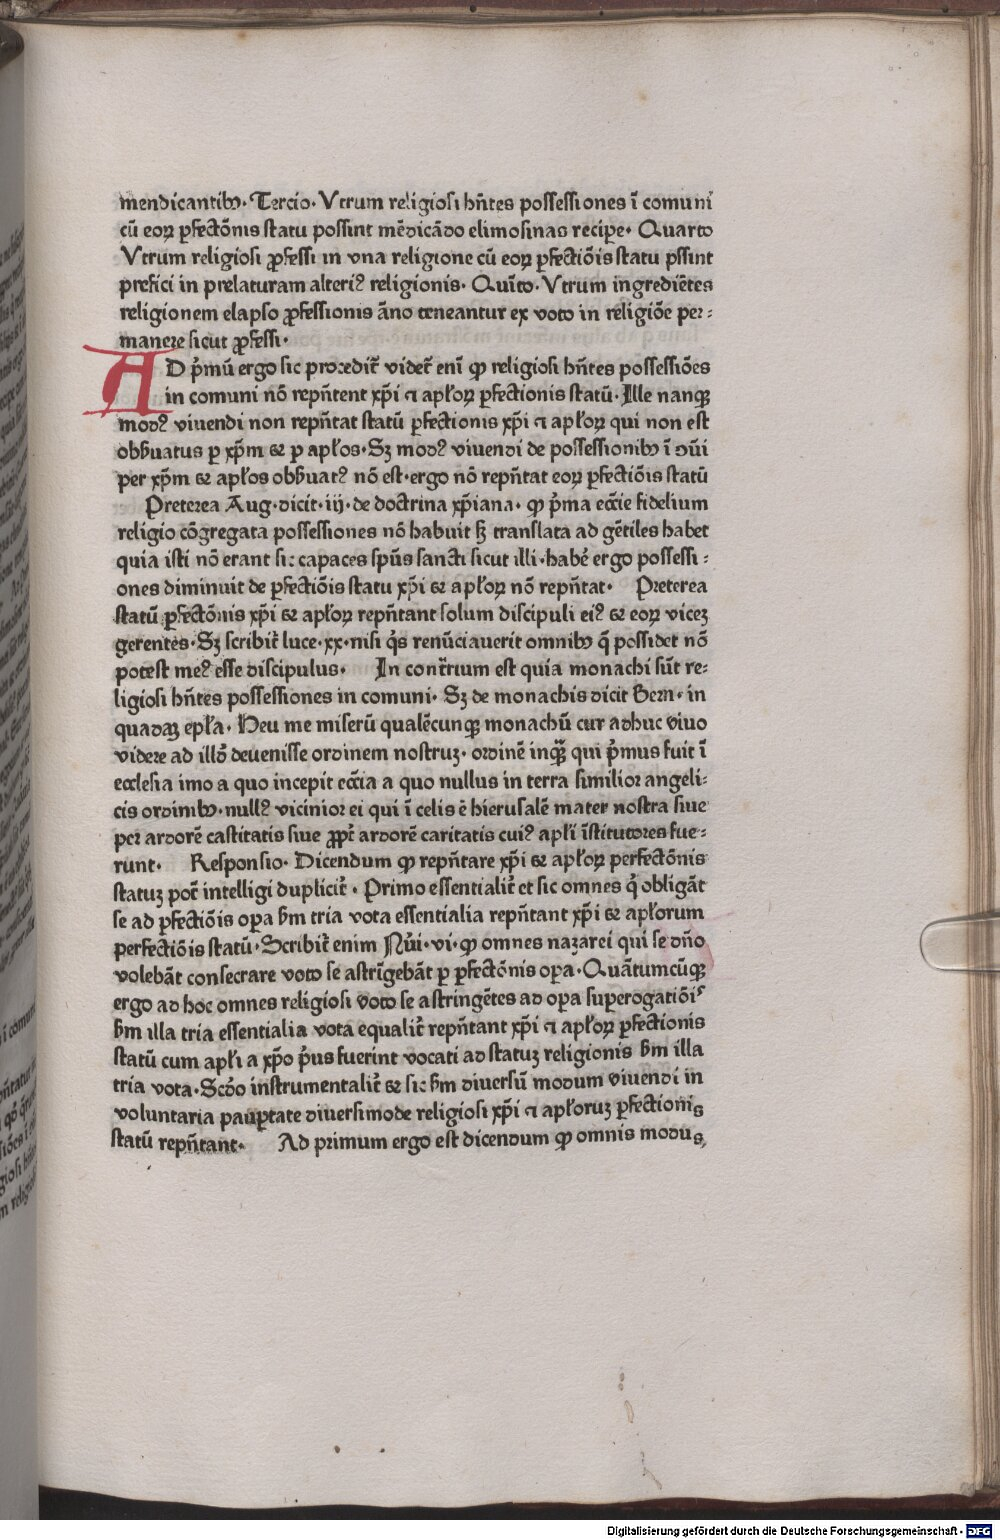 mendicantibꝰ. Tercio. Vtrum religiosi hñtes possessiones ī comuni
cū eoꝝ ꝑfectōnis statu possint mēdicādo elimosinas recipe. Quarto
Vtrum religiosi ꝓfessi in vna religione cū eoꝝ ꝑfectiōis statu pssint
prefici in prelaturam alteriꝰ religionis. Quīto. Vtrum ingrediētes
religionem elapso ꝓfessionis āno teneantur ex voto in religiōe per⸗
manere sicut ꝓfessi.
AD p̄mū ergo sic procedit᷑ videt᷑ eni ꝙ religiosi hñtes possessiōes
in comuni nō repn̄tent xp̄i ⁊ apłoꝝ ꝑfectionis statū. Ille nanqꝫ
modꝰ viuendi non repn̄tat statū ꝑfectionis xp̄i ⁊ apłoꝝ qui non est
obẜuatus ꝑ xp̄m ⁊ ꝑ apłos. Sꝫ modꝰ viuendi de possessionibꝰ ī ↄūi
per xp̄m ⁊ apłos obẜuatꝰ nō est. ergo nō repn̄tat eoꝝ ꝑfectiōis statū
Preterea Aug. dicit. iij. de doctrina xp̄iana. ꝙ p̄ma eccīe fidelium
religio cōgregata possessiones nō habuit sꝫ translata ad gētiles habet
quia isti nō erant sic capaces spūs sancti sicut illi. habē ergo possessi⸗
ones diminuit de ꝑfectiōis statu xp̄i ⁊ apłoꝝ nō repn̄tat. Preterea
statū ꝑfectōnis xp̄i ⁊ apłoꝝ repn̄tant solum discipuli eiꝰ ⁊ eoꝝ viceꝫ
gerentes. Sꝫ scribit᷑ luce. xx. nisi q̇s renūciauerit omnibꝰ q̄ possidet nō
potest meꝰ esse discipulus. In cont᷑rium est quia monachi sūt re⸗
ligiosi hñtes possessiones in comuni. Sꝫ de monachis dicit Bern. in
quadaꝫ epła. Heu me miserū qualēcunqꝫ monachū cur adhuc viuo
videre ad illō deuenisse ordinem nostruꝫ. ordinē inqꝫ qui p̄mus fuit ī
ecclesia imo a quo incepit eccīa a quo nullus in terra similior angeli⸗
cis ordinibꝰ. nullꝰ vicinior ei qui ī celis ē hierusalē mater nostra siue
per ardorē castitatis siue ꝓpt᷑ ardorē caritatis cuiꝰ apłi īstitutores fue⸗
runt. Responsio. Dicendum ꝙ repn̄tare xp̄i ⁊ apłoꝝ perfectōnis
statuꝫ pot᷑ intelligi duplicit᷑. Primo essentialit᷑ et sic omnes q̇ obligāt
se ad ꝑfectiōis oꝑa ẜm tria vota essentialia repn̄tant xp̄i ⁊ apłorum
perfectiōis statū. Scribit᷑ enim Nūi. vi. ꝙ omnes nazarei qui se dn̄o
volebāt consecrare voto se astrīgebāt ꝑ ꝑfectōnis oꝑa. Quātumcūqꝫ
ergo ad hoc omnes religiosi voto se astringētes ad oꝑa superogatiōis
ẜm illa tria essentialia vota equalit᷑ repn̄tant xp̄i ⁊ apłoꝝ ꝑfectionis
statū cum apłi a xp̄o p̄us fuerint vocati ad statuꝫ religionis ẜm illa
tria vota. Scdo instrumentalit᷑ ⁊ sic ẜm diuersū modum viuendi in
voluntaria pauꝑtate diuersimode religiosi xp̄i ⁊ apłoruꝫ ꝑfectionis
statū repn̄tant. Ad primum ergo est dicendum ꝙ omnis modus
Digitalisierung gefördert durch die Deutsche Forschungsgemeinschaft - DFG